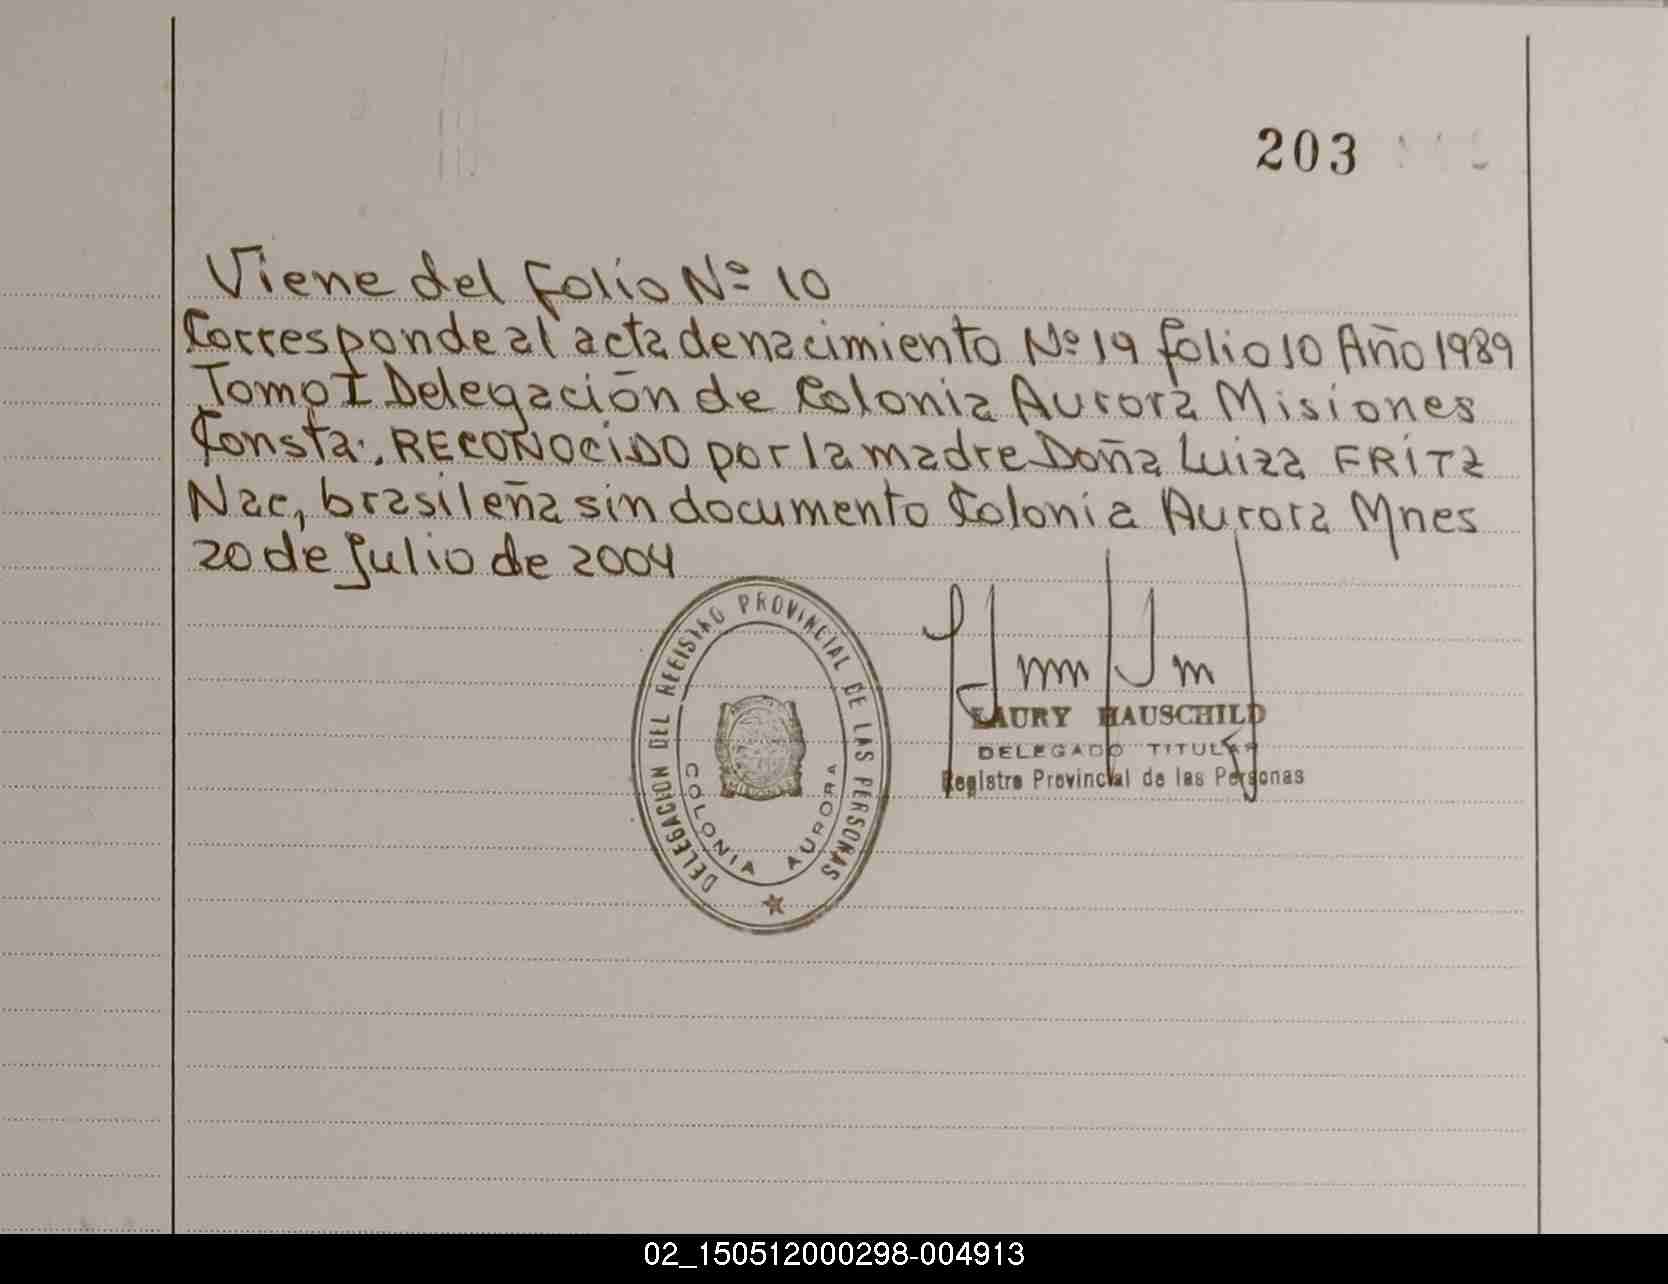 203
Viene del folio Nº 10
Corresponde al acta de nacimiento Nº 19 folio 10 Año 1989
Tomo I Delegación de Colonia Aurora Misiones
Consta: RECONOCIDO por la madre Doña Luiza FRITZ
Nac, brasileña sin documento Colonia Aurora Mnes
20 de Julio de 2004
DELEGACION DEL REGISTRO PROVINCIAL DE LAS PERSONAS
COLONIA AURORA
LAURY HAUSCHILD
DELEGADO TITULAR
Registro Provincial de las Personas
02_150512000298-004913